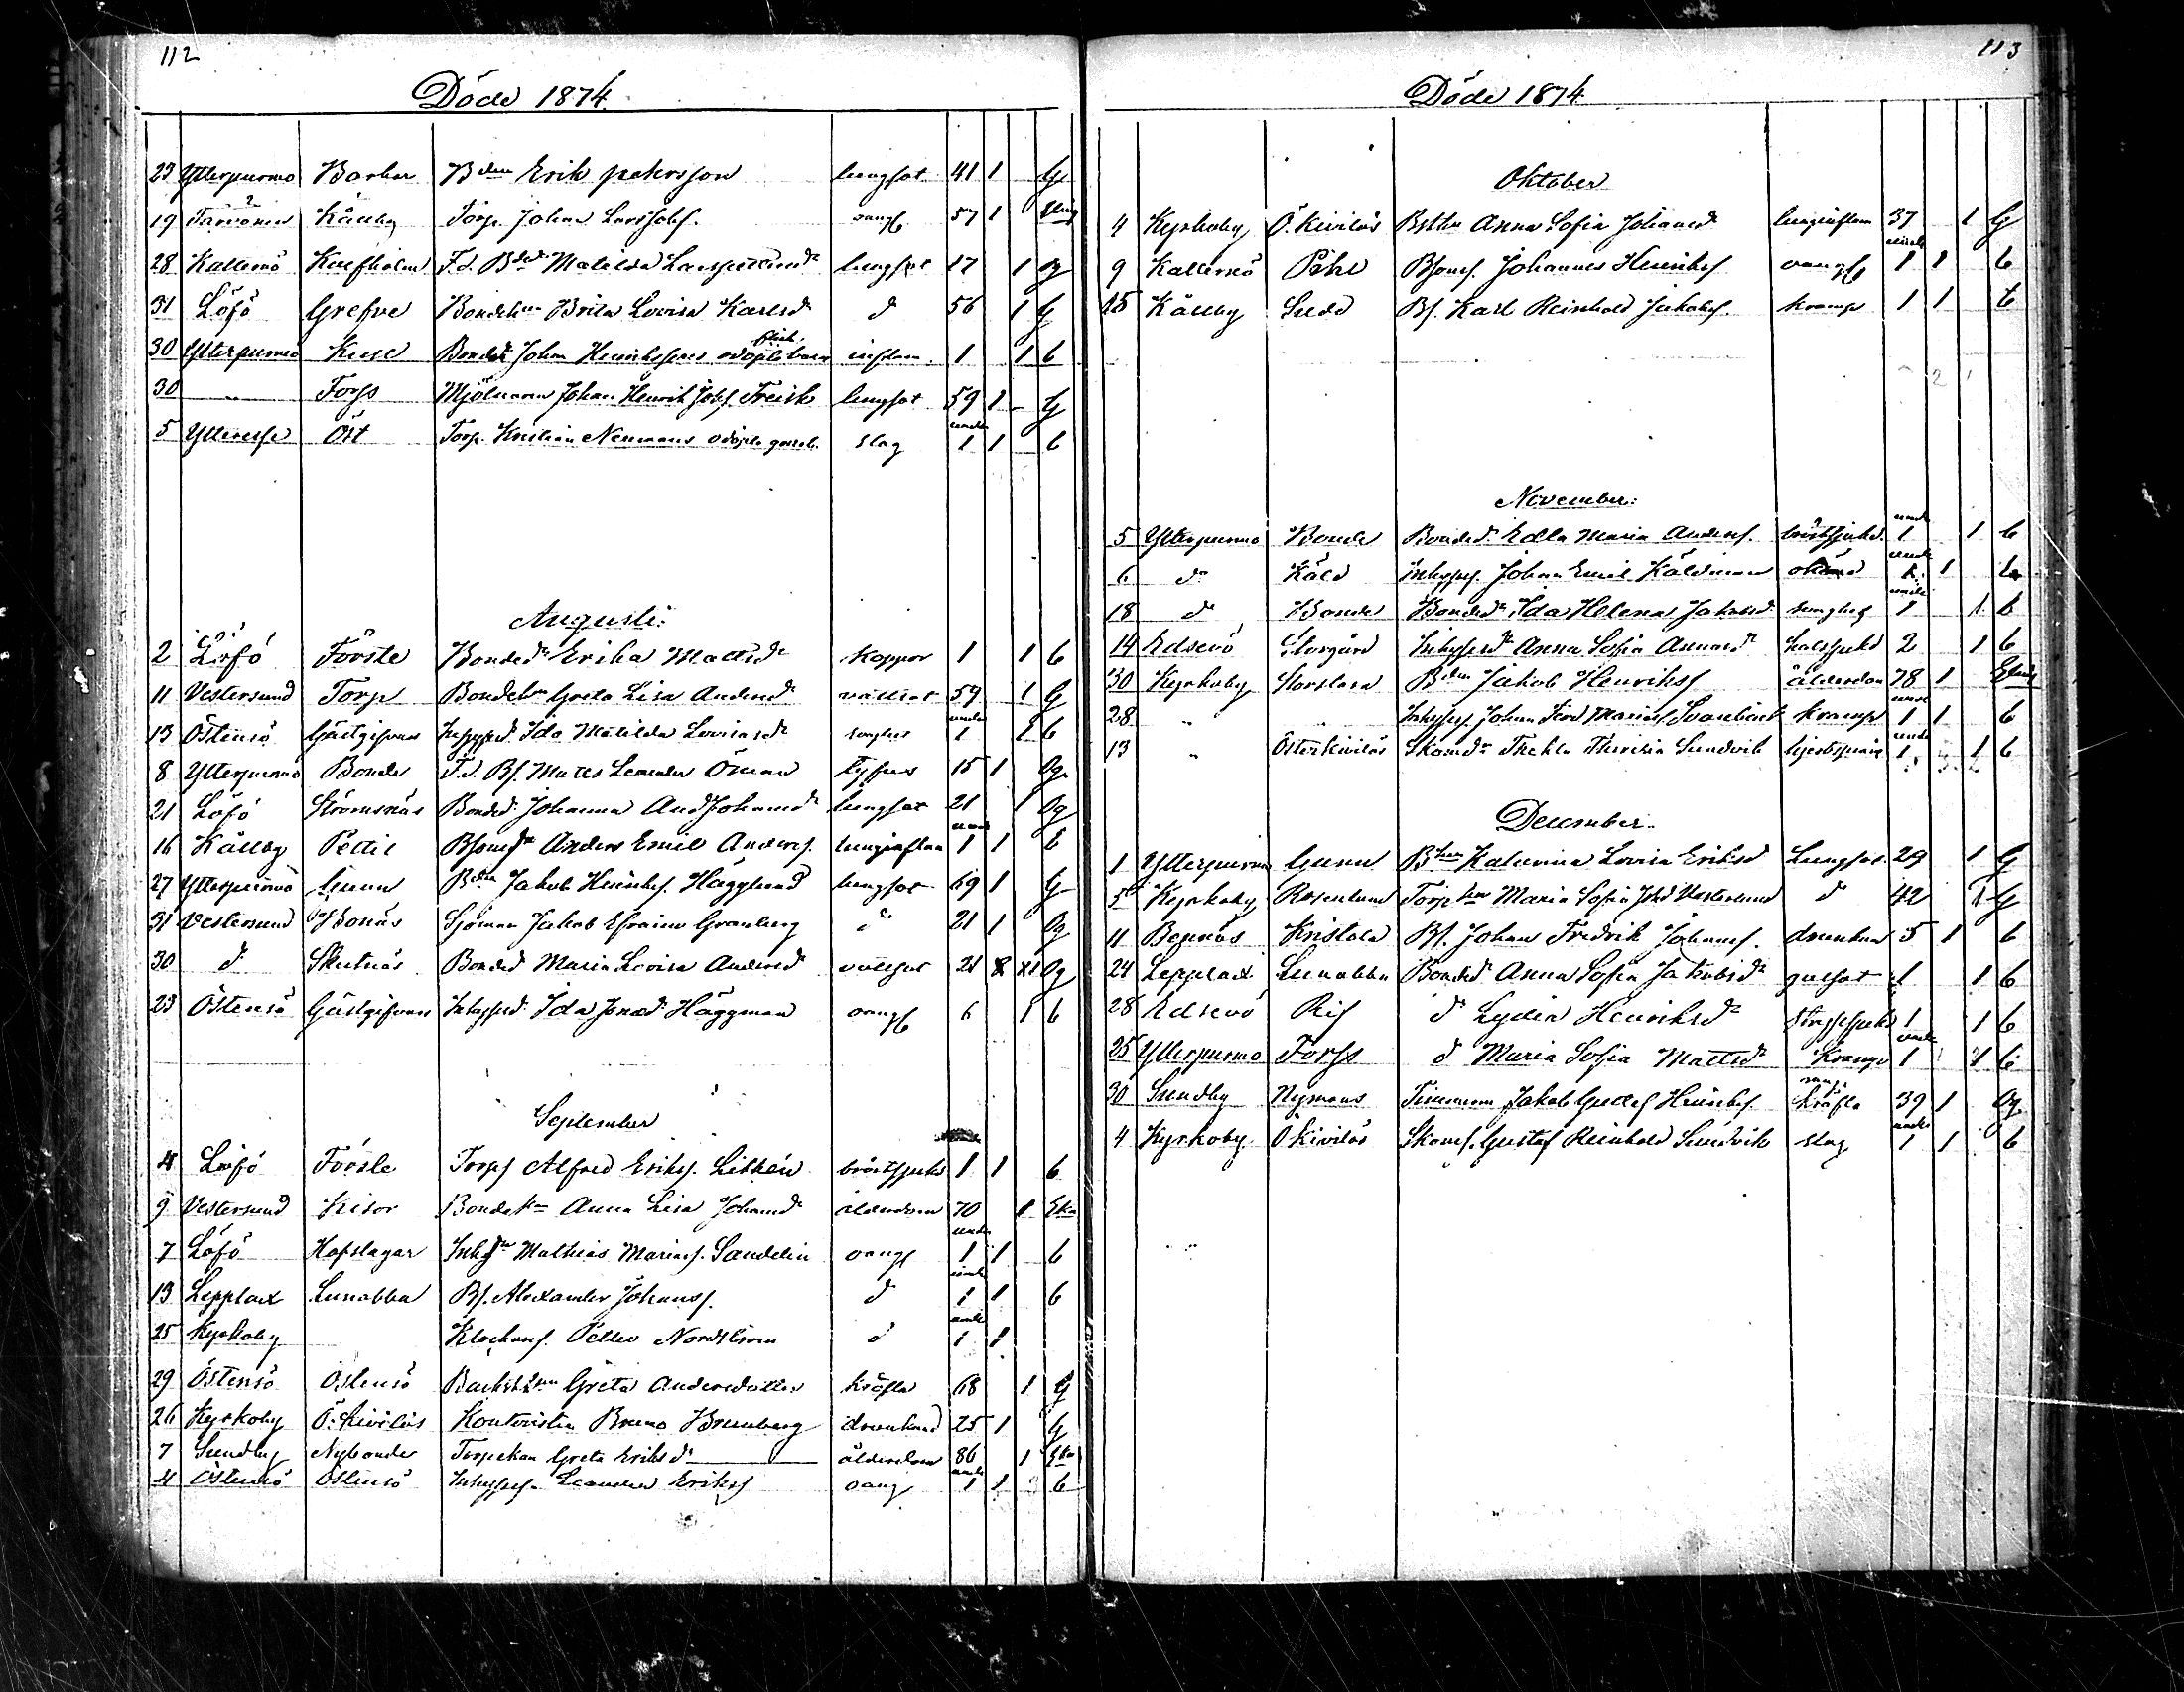 112
Döde 1874
23 Ytterpurmo Barkar Bden Erik Jakobsson lungsot 41 1 G
19 Kållby Torp. Johan Larsf. oangf 57 1
28 Kallernö Kaufholm F.d. Matilda lungsot 17 1 Og
31 Löfö Grefve Bondehu Brita Lovisa Karlsd d 56 1 G
30 Ytterpurmo Kuse Bonde Johan Henrikssons odöpt flick. barn inflam. 1 1 b
30 " Forss Mjölnaren Johan Henrik Johs. Freish lungsot 59 1 - G
5 Ytteresse Öst Torp. Kristian Neumans odöpta gosseb. slag under 1 1 b
Augusti:
2 Löfö Förste Bonded Erika Mattsd koppor 1 1 b
11 Vestersund Torp Bondehu Greta Lisa Andersd vattsot 59 1 G
13 Östensö Gästgifvars Inhysesd. Ida Matilda Lovisasd under 1 1 b
8 Ytterpurmo Bonde F.d. Bs. Matts Leander Öman Tyfus 15 1 Og
21 Löfö Strömsnäs Bonded. Johanna And Johansd lungsot 21 1 Og
16 Kållby Pettil Anders Emil Andersf. lunginflam under 1 1 b
27 Ytterpurmo Gunn Bden Jakob Henriksf. Hägglund lungsot 69 1 G
31 Vestersund Sjöman Jakob Efraim Granberg d 21 1 Og
30 d Skutnäs Bonded Maria Lovisa Andersd vattsot 21 1 Og
23 Östensö Gästgifvars Inhysesd. Ida Jonasd Häggman oangf 6 1 b
September
4 Löfö Förste Torps Alfred Eriksf. Litthén bröstsjukd 1 1 b
9 Vestersund Kisor Bondehu Anna Lisa Johansd ålderdom 70 1 Eka
7 Löfö Hofslagar Mathias Mariasf. Sandelin oangf under 1 1 b
13 Lepplax Lunabba Bs. Alexander Johansf. d under 1 1 b
25 Kyrkoby Klockarsf. Petter Nordström d under 1 1
29 Östensö Östensö Greta Andersdotter kräfta 68 1 G
26 Kyrkoby Ö. Kivilös Kontoristen Bruno Brunberg drunknad 25 1 G
7 Sundby Nybonde Torpenkan Greta Eriksd ålderdom 86 1 Eka
4 Östensö Östensö Inhysesf. Leander Eriksf oangf under 1 1 b
113
Döde 1874
Oktober
4 Kyrkoby Ö. Kivilös Anna Sofia Johansd lunginflam 37 1 G
9 Kallernö Pehl Bsonf. Johannes Henriksf oangf under 1 1 b
15 Kållby Sudd Bs. Karl Reinhold Jakobsf. kramp 1 1 b
November:
5 Ytterpurmo Bonde Bonded. Edla Maria Andersd. bröstsjukd. under 1 1 b
6 d Käld Inhysesf. Johan Emil Käldman okänd under 1 1
18 d Bonde Bonded Ida Helena Jakobsd under 1 1 b
14 Edsevö Storgård Inhysesd Anna Sofia Annasd halssjukd 2 1 b
30 Kyrkoby Storstara Bden Jakob Henriksf ålderdom 78 1
28 " " Inhysesf. Johan Ferd Mariasf Svanbäck kramp under 1 1 b
13 " Österkivilös Skomd Thekla Theresia Sundvik under 1 1 b
December
1 Ytterpurmo Gunn Bhu Katarina Lovisa Eriksd Lungsot 29 1 G
5 Kyrkoby Rosenlund Torphu Maria Sofia Johd Vesterlund d 42 1 G
11 Bennäs Kristola Bs. Johan Fredrik Johansf. drunknad 5 1 b
24 Lepplax Lunabba Bonded Anna Sofia Jakobsd gulsot 1 1 b
28 Edsevö Rif d Lydia Henriksd 1 1 b
25 Ytterpurmo Forss d Maria Sofia Mattsd Kramp under 1 1 b
30 Sundby Nymans Timmerm Jakob Gustaf Henriksf. kräfta 39 1 Og
4 Kyrkoby Ö Kivilös Skomf. Gustaf Reinhold Sundvik slag under 1 1 b